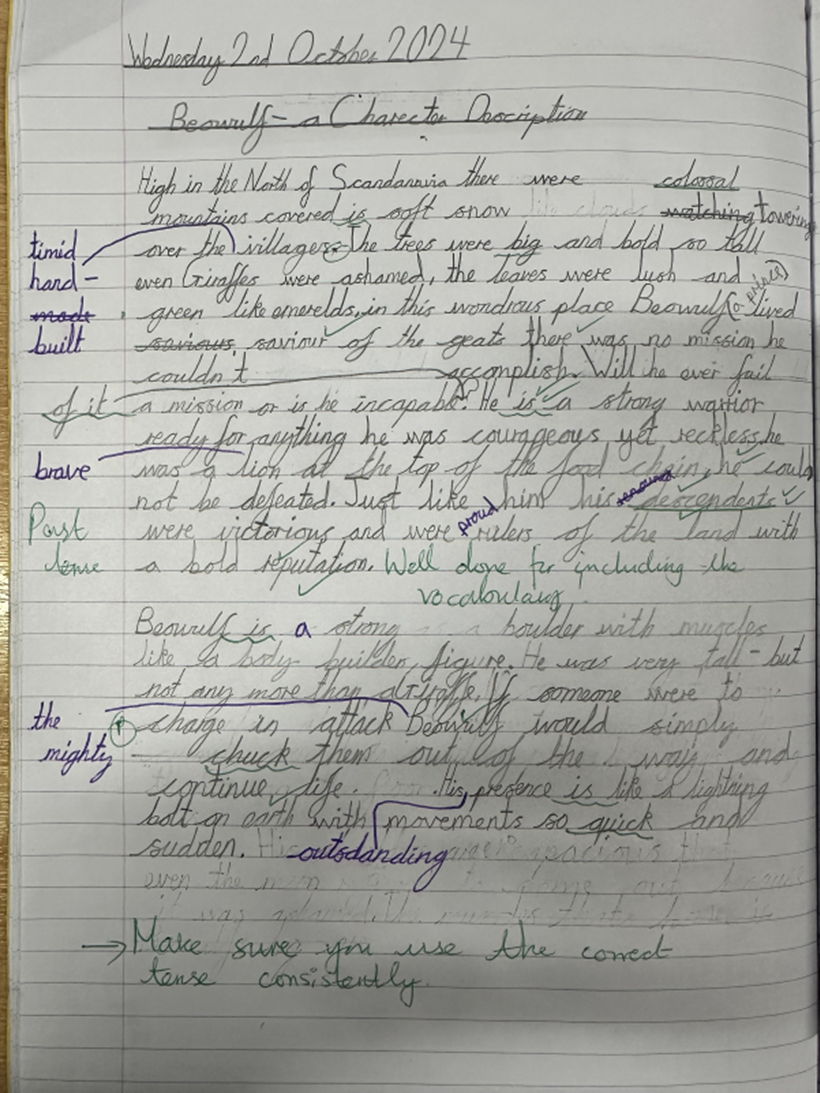 Wednesday 2nd October 2024
Beowulf - a Charecter Description
High in the North of Scandannvia there were colossal
mountains covered is soft snow like clouds watching towering
timid
over the villagers. The trees were big and bold so tall
hard-
even Giraffes were ashamed, the leaves were lush and
made
green like emerelds, in this wondrous place Beowulf (a prince) lived
built
savious, saviour of the geats there was no mission he
couldn't accomplish. Will he ever fail
of it a mission or is he incapable? He is a strong warrior
ready for anything he was courageous yet reckless, he
brave
was a lion at the top of the food chain, he could
not be defeated. Just like him his renound descendents
Past
were victorious and were proud rulers of the land with
tense
a bold reputation. Well done for including the
vocabulary.
Beowulf is a strong as a boulder with muscles
like a body builder, figure. He was very tall - but
not any more than a Giraffe. If someone were to
the
charge in attack Beowulf would simply
mighty
chuck them out of the way and
continue life. His presence is like a lightning
bolt on earth with movements so quick and
sudden. His outsdanding spacious that
even the come out because
it was ashamed. The
→ Make sure you use the correct
tense consistently.